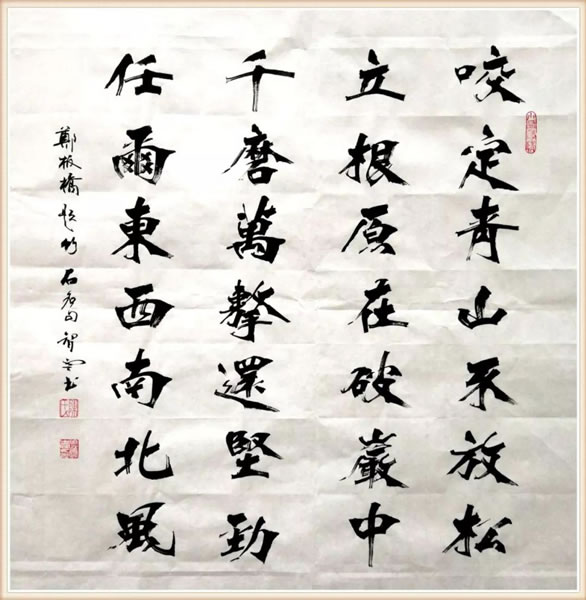 咬定青山不放松
立根原在破巖中
千磨萬擊還堅勁
任爾東西南北風
鄭板橋 竹石 句 書